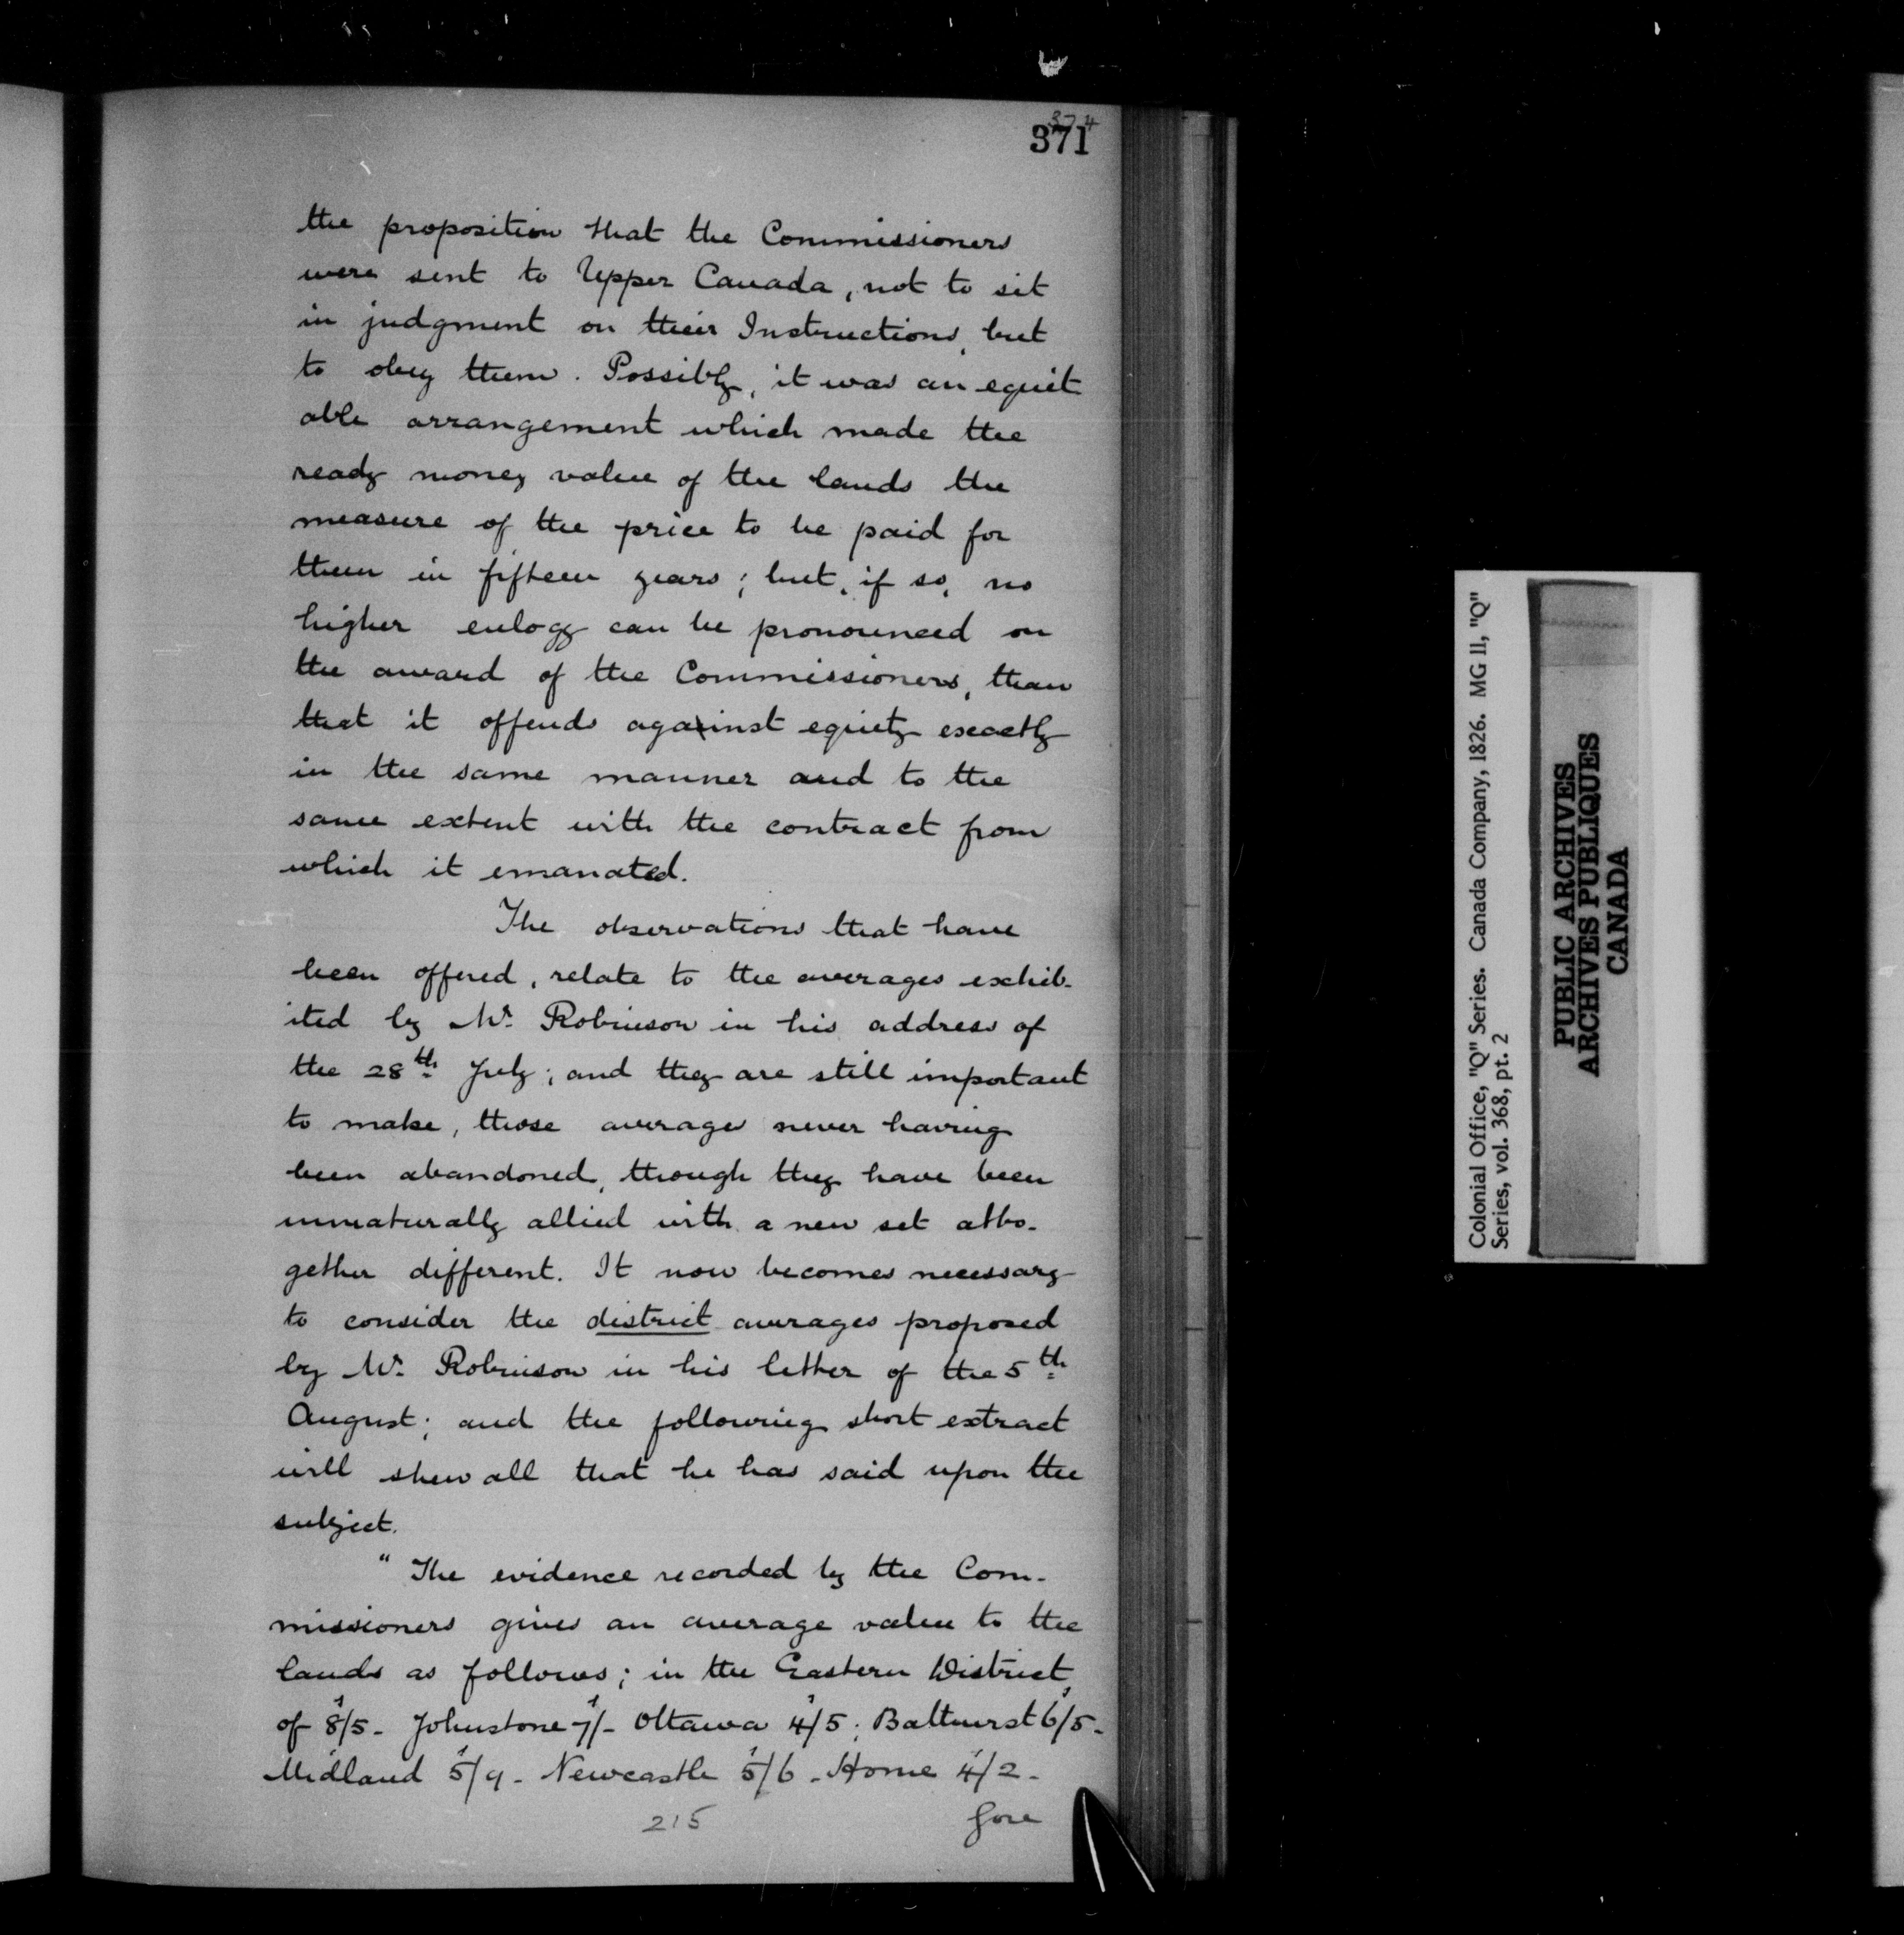 374
371
the proposition that the Commissioners
were sent to Upper Canada, not to sit
in judgment on their Instructions, but
to obey them. Possibly, it was an equit
able arrangement which made the
ready money value of the lands the
measure of the price to be paid for
them in fifteen years; but, if so, no
higher eulogy can be pronounced on
the award of the Commissioners, than
that it offends against equity exactly
in the same manner and to the
same extent with the contract from
which it emanated.
The observations that have
been offered, relate to the averages exhib-
ited by Mr. Robinson in his address of
the 28th July; and they are still important
to make, those averages never having
been abandoned, though they have been
unnaturally allied with a new set alto-
gether different. It now becomes necessary
to consider the district averages proposed
by Mr. Robinson in his letter of the 5th
August; and the following short extract
will shew all that he has said upon the
subject.
" The evidence recorded by the Com-
missioners gives an average value to the
lands as follows; in the Eastern District,
of 8/5 - Johnstone 7/- Ottawa 4/5; Bathurst 6/5 -
Midland 5/9 - Newcastle 5/6 - Home 4/2 -
215
Gore
Colonial Office, "Q" Series. Canada Company, 1826. MG 11, "Q"
Series, vol. 368, pt. 2
PUBLIC ARCHIVES
ARCHIVES PUBLIQUES
CANADA